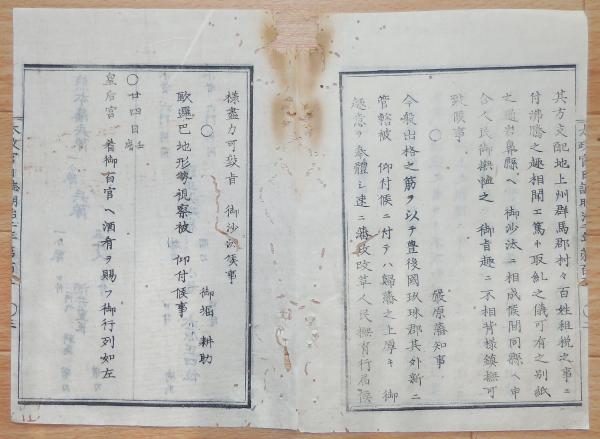 其方支配地上州群馬郡村々百姓租税之事ニ
付沸騰之趣相聞エ篤ト取糺之儀可有之別紙
之通岩鼻縣ヘ 御沙汰ニ相成候間同縣ヘ申
合人民御撫恤之 御旨趣ニ不相背様鎮撫可
致候事
○ 嚴原藩知事
今般出格之筋ヲ以テ豊後國玖珠郡其外新ニ
管轄被 仰付候ニ付テハ歸藩之上厚キ 御
趣意ヲ奉體シ速ニ藩政改革人民撫育行届候
様盡力可致旨 御沙汰候事
○ 御堀 耕助
歐邏巴地形勢視察被 仰付候事
○廿四日 壬辰
皇后宮 着御百官ヘ酒肴ヲ賜フ御行列如左